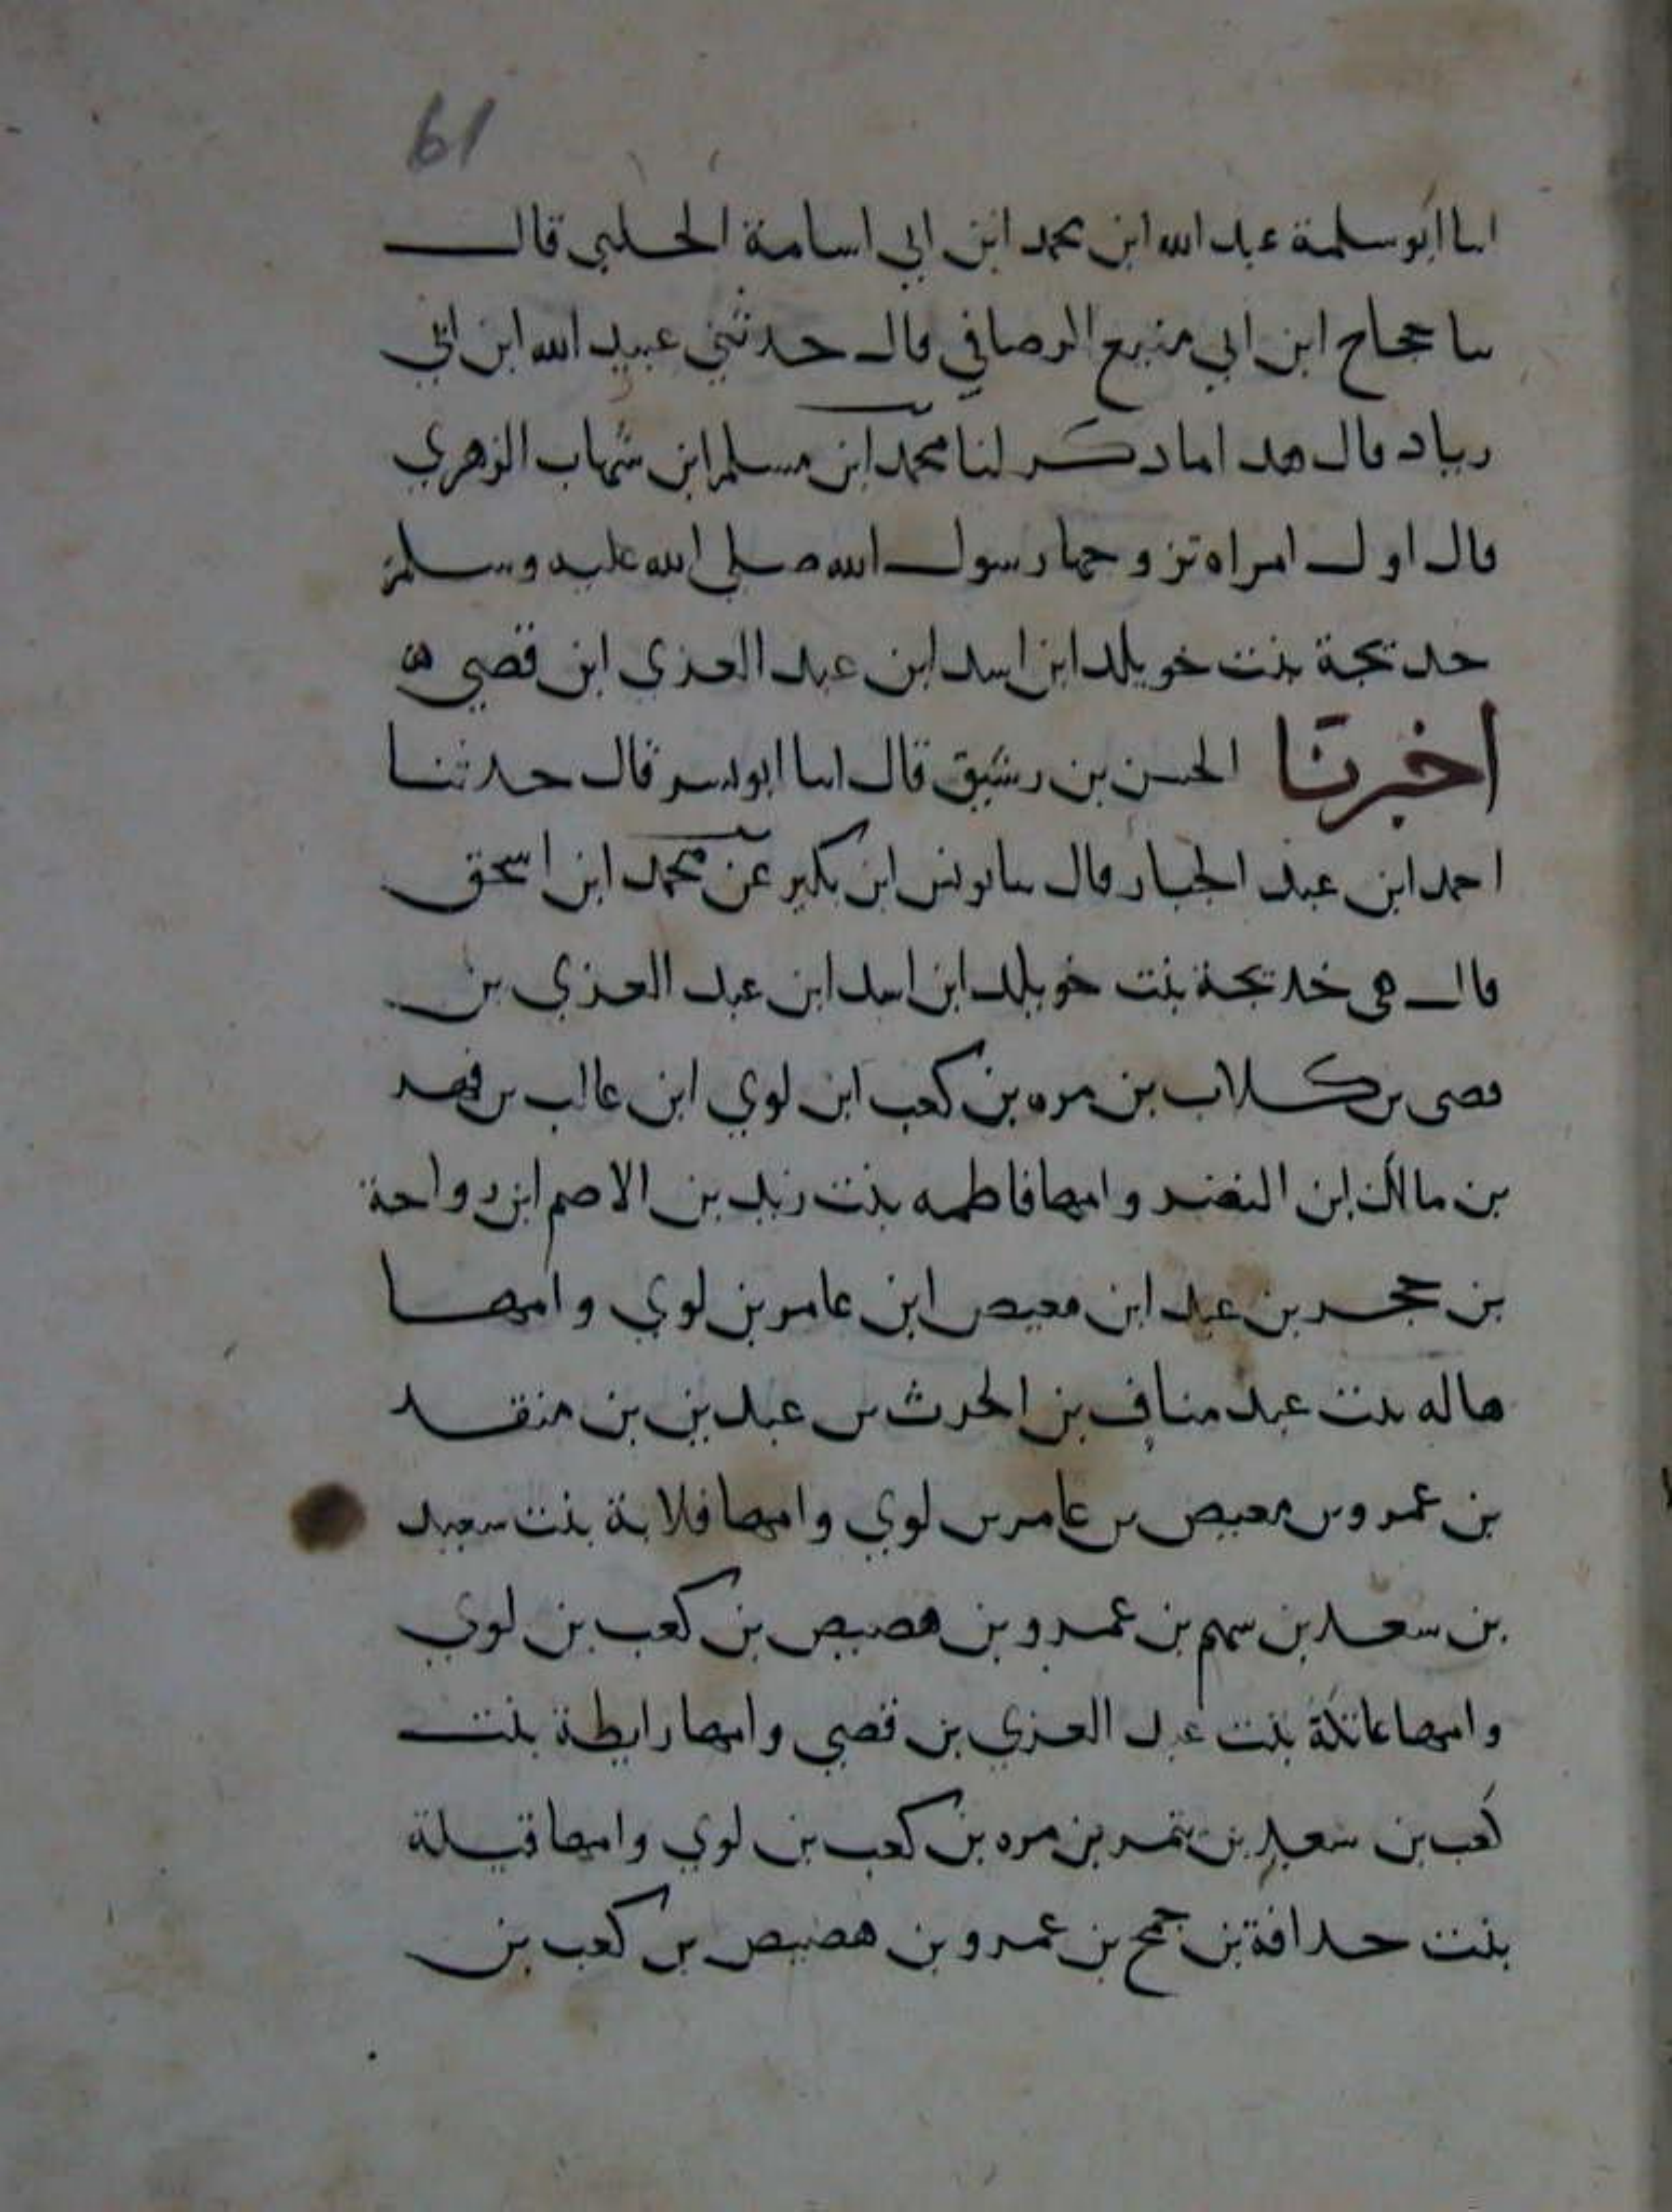 61
اسا ابو سلمة عبد الله ابن محمد ابن ابي اسامة الحلبي قال
سا حجاح ابن ابي منيع الرصافي قال حدثني عبيد الله ابن ابي
رياد قال هدا مادكر لنا محمد ابن مسلم ابن شهاب الزهري
قال اول امراه تزوجها رسول الله صلى الله عليه وسلم
خديجة بنت خويلد ابن اسد ابن عبد العزي ابن قصي ه
اخبرنا الحسن بن رشيق قال اسا ابو بسر قال حدثنا
احمد ابن عبد الجبار قال سا يونس ابن بكير عن محمد ابن اسحق
قال هي خديجة بنت خويلد ابن اسد ابن عبد العزي بن
قصى بن كلاب بن مره بن كعب ابن لوي ابن عالب بن فهر
بن مالك ابن النضر وامها فاطمه بنت زيد بن الاصم ابن رواحة
بن حجر بن عبد ابن معيص ابن عامر بن لوي وامها
هاله بنت عبد مناف بن الحرث بن عبد بن بن منقد
بن عمرو بن معيص بن عامر بن لوي وامها قلابة بنت سعيد
بن سعد بن سهم بن عمرو بن هصيص بن كعب بن لوي
وامها عاتكة بنت عبد العزي بن قصي وامها رايطة بنت
كعب بن سعد بن تيم بن مره بن كعب بن لوي وامها قيلة
بنت حدافة بن جمح بن عمرو بن هصيص بن كعب بن